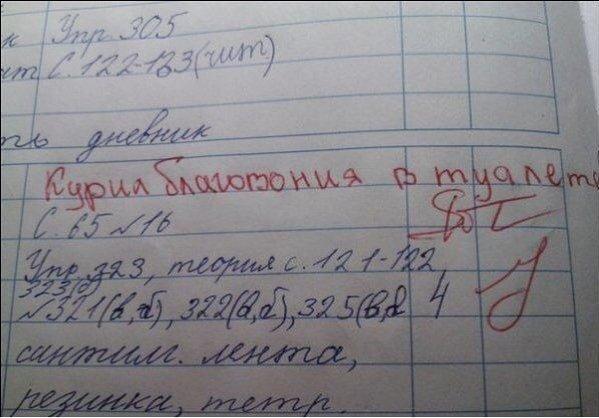 к Упр 305
С. 122-123(чит)
ть дневник
Курил благовония в туалете
С. 65 №16
Упр. 323, теория с. 121-122
323(б)
№321(в,б), 322(в,б), 325(в, 4
сантим. лента,
резинка, тетр.